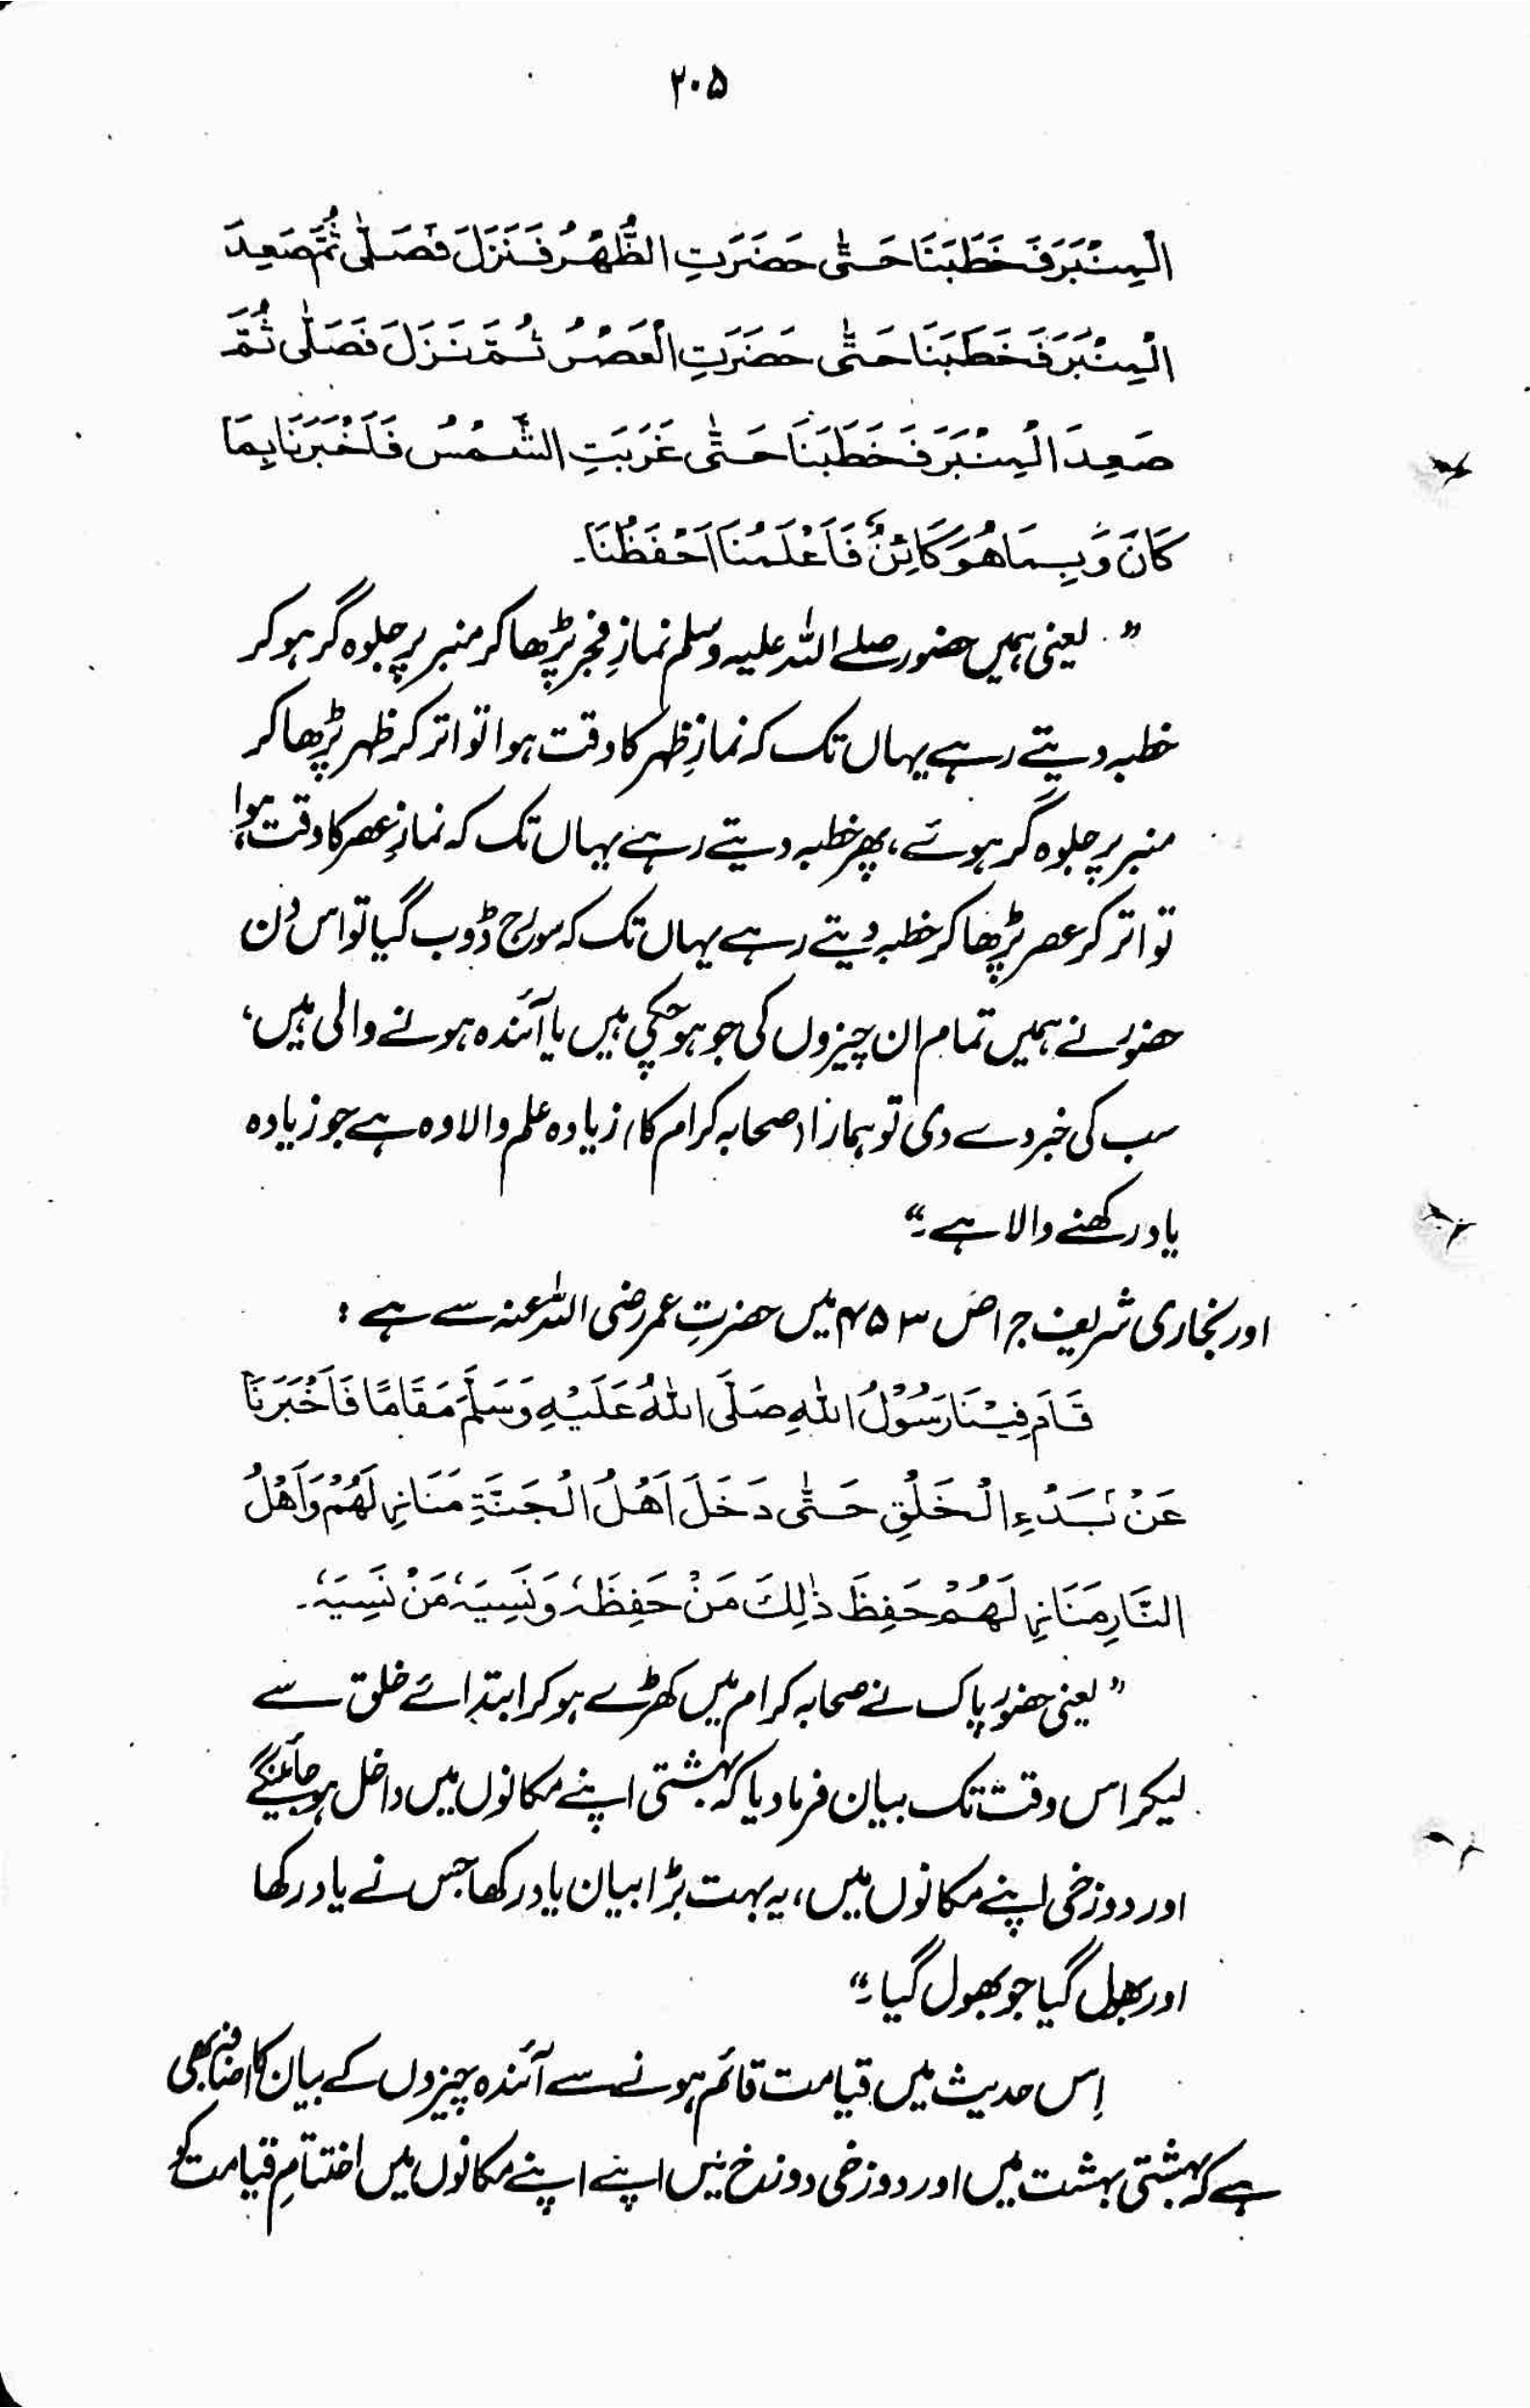 ۲۰۵
الْمِنْبَرَ فَخَطَبَنَا حَتّٰى حَضَرَتِ الظُّهْرُ فَنَزَلَ فَصَلّٰى ثُمَّ صَعِدَ
الْمِنْبَرَ فَخَطَبَنَا حَتّٰى حَضَرَتِ الْعَصْرُ ثُمَّ نَزَلَ فَصَلّٰى ثُمَّ
صَعِدَ الْمِنْبَرَ فَخَطَبَنَا حَتّٰى غَرَبَتِ الشَّمْسُ فَاَخْبَرَنَا بِمَا
كَانَ وَبِمَا هُوَ كَائِنٌ فَاَعْلَمُنَا اَحْفَظُنَا۔
” یعنی ہمیں حضور صلے اللہ علیہ وسلم نمازِ فجر پڑھا کر منبر پر جلوہ گر ہو کر
خطبہ دیتے رہے یہاں تک کہ نمازِ ظہر کا وقت ہوا تو اتر کر ظہر پڑھا کر
منبر پر جلوہ گر ہوئے، پھر خطبہ دیتے رہے یہاں تک کہ نمازِ عصر کا وقت ہوا،
تو اتر کر عصر پڑھا کر خطبہ دیتے رہے یہاں تک کہ سورج ڈوب گیا تو اس دن
حضور نے ہمیں تمام ان چیزوں کی جو ہو چکی ہیں یا آئندہ ہونے والی ہیں،
سب کی خبر دے دی تو ہمارا (صحابہ کرام کا) زیادہ علم والا وہ ہے جو زیادہ
یاد رکھنے والا ہے۔“
اور بخاری شریف ج ۱ ص ۴۵۳ میں حضرتِ عمر رضی اللہ عنہ سے ہے :
قَامَ فِيْنَا رَسُوْلُ اللهِ صَلَّى اللهُ عَلَيْهِ وَسَلَّمَ مَقَامًا فَاَخْبَرَنَا
عَنْ بَدْءِ الْخَلْقِ حَتّٰى دَخَلَ اَهْلُ الْجَنَّةِ مَنَازِلَهُمْ وَاَهْلُ
النَّارِ مَنَازِلَهُمْ حَفِظَ ذٰلِكَ مَنْ حَفِظَهٗ وَنَسِيَهٗ مَنْ نَسِيَهٗ۔
” یعنی حضور پاک نے صحابہ کرام میں کھڑے ہو کر ابتدائے خلق سے
لیکر اس وقت تک بیان فرما دیا کہ بہشتی اپنے مکانوں میں داخل ہو جائینگے
اور دوزخی اپنے مکانوں میں، یہ بہت بڑا بیان یاد رکھا جس نے یاد رکھا
اور بھول گیا جو بھول گیا۔“
اِس حدیث میں قیامت قائم ہونے سے آئندہ چیزوں کے بیان کا اضافہ بھی
ہے کہ بہشتی بہشت میں اور دوزخی دوزخ میں اپنے اپنے مکانوں میں اختتامِ قیامت کو